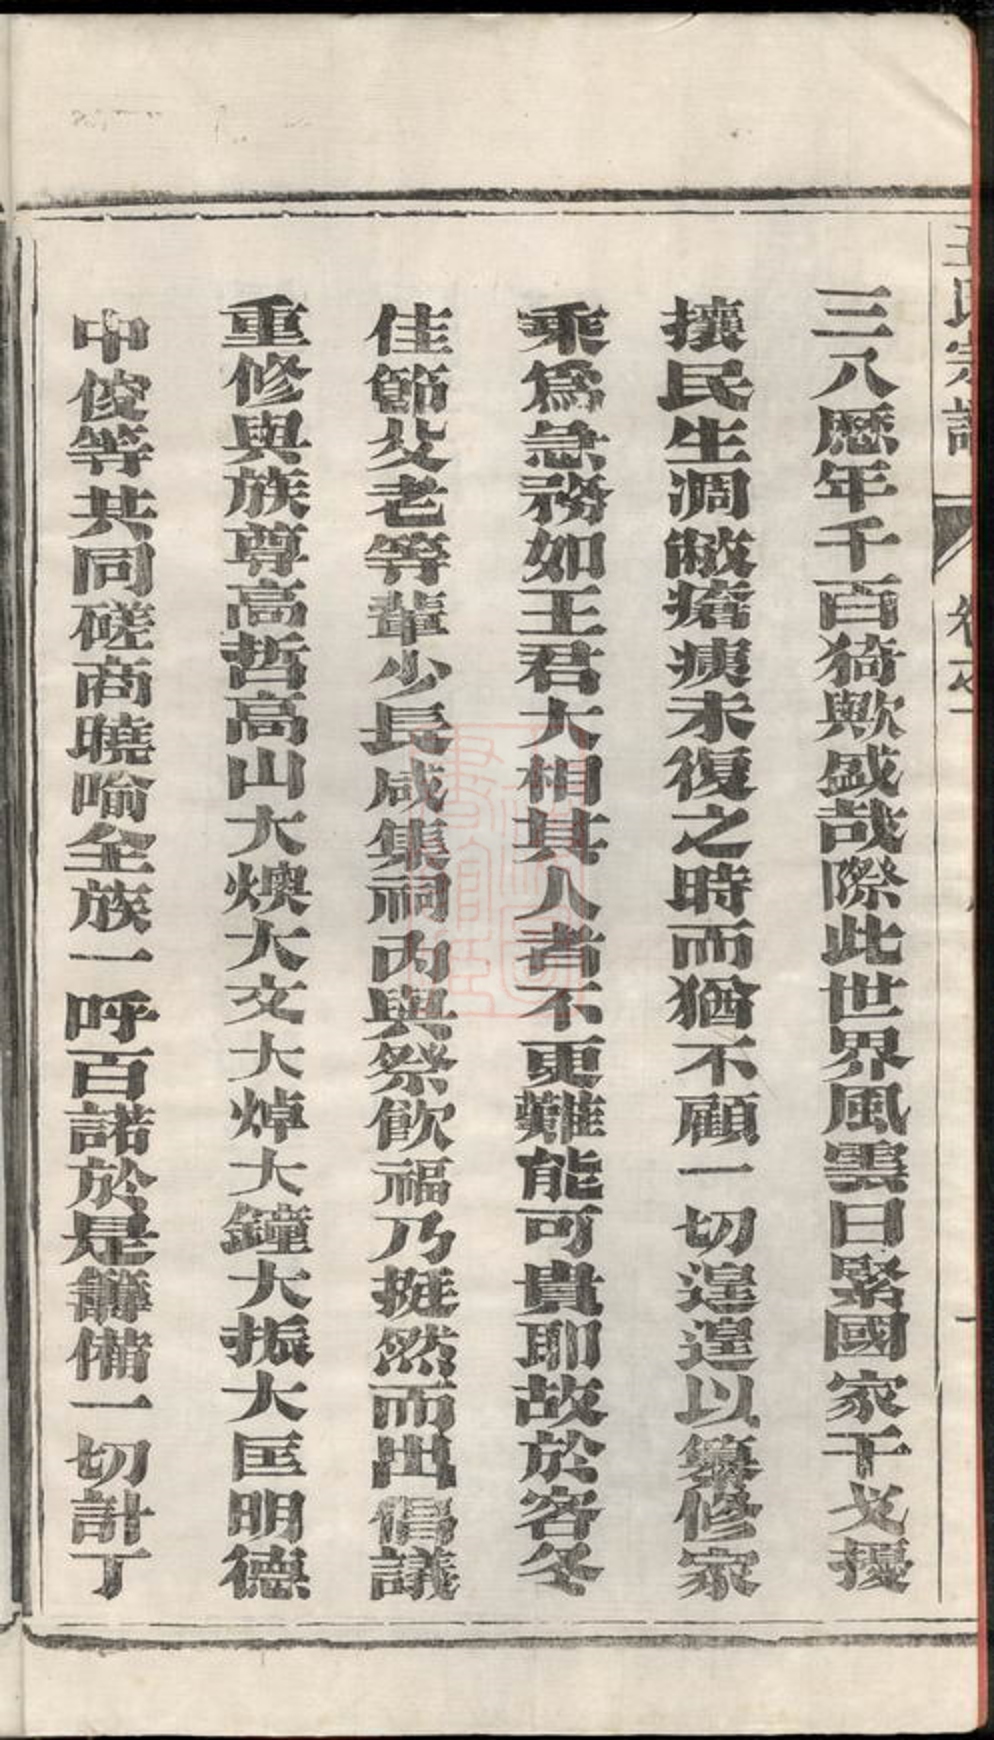 王氏宗譜 卷之一
三八歷年千百猗歟盛哉際此世界風雲日緊國家干戈擾
攘民生凋敝瘡痍未復之時而猶不顧一切遑遑以纂修家
乘爲急務如王君大相其人者不更難能可貴耶故於客冬
佳節父老等輩少長咸集祠內與祭飲福乃挺然而出倡議
重修與族尊高哲高山大燠大文大焯大鐘大振大匡明德
中俊等共同磋商曉喻全族一呼百諾於是籌備一切計丁